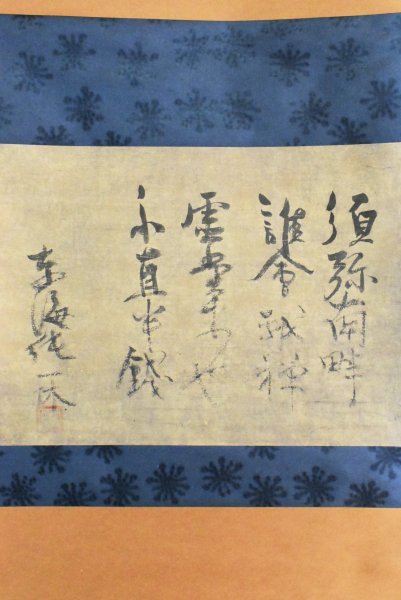 須弥南畔
誰会我禅
虚堂来也
不直半銭
東海純一休